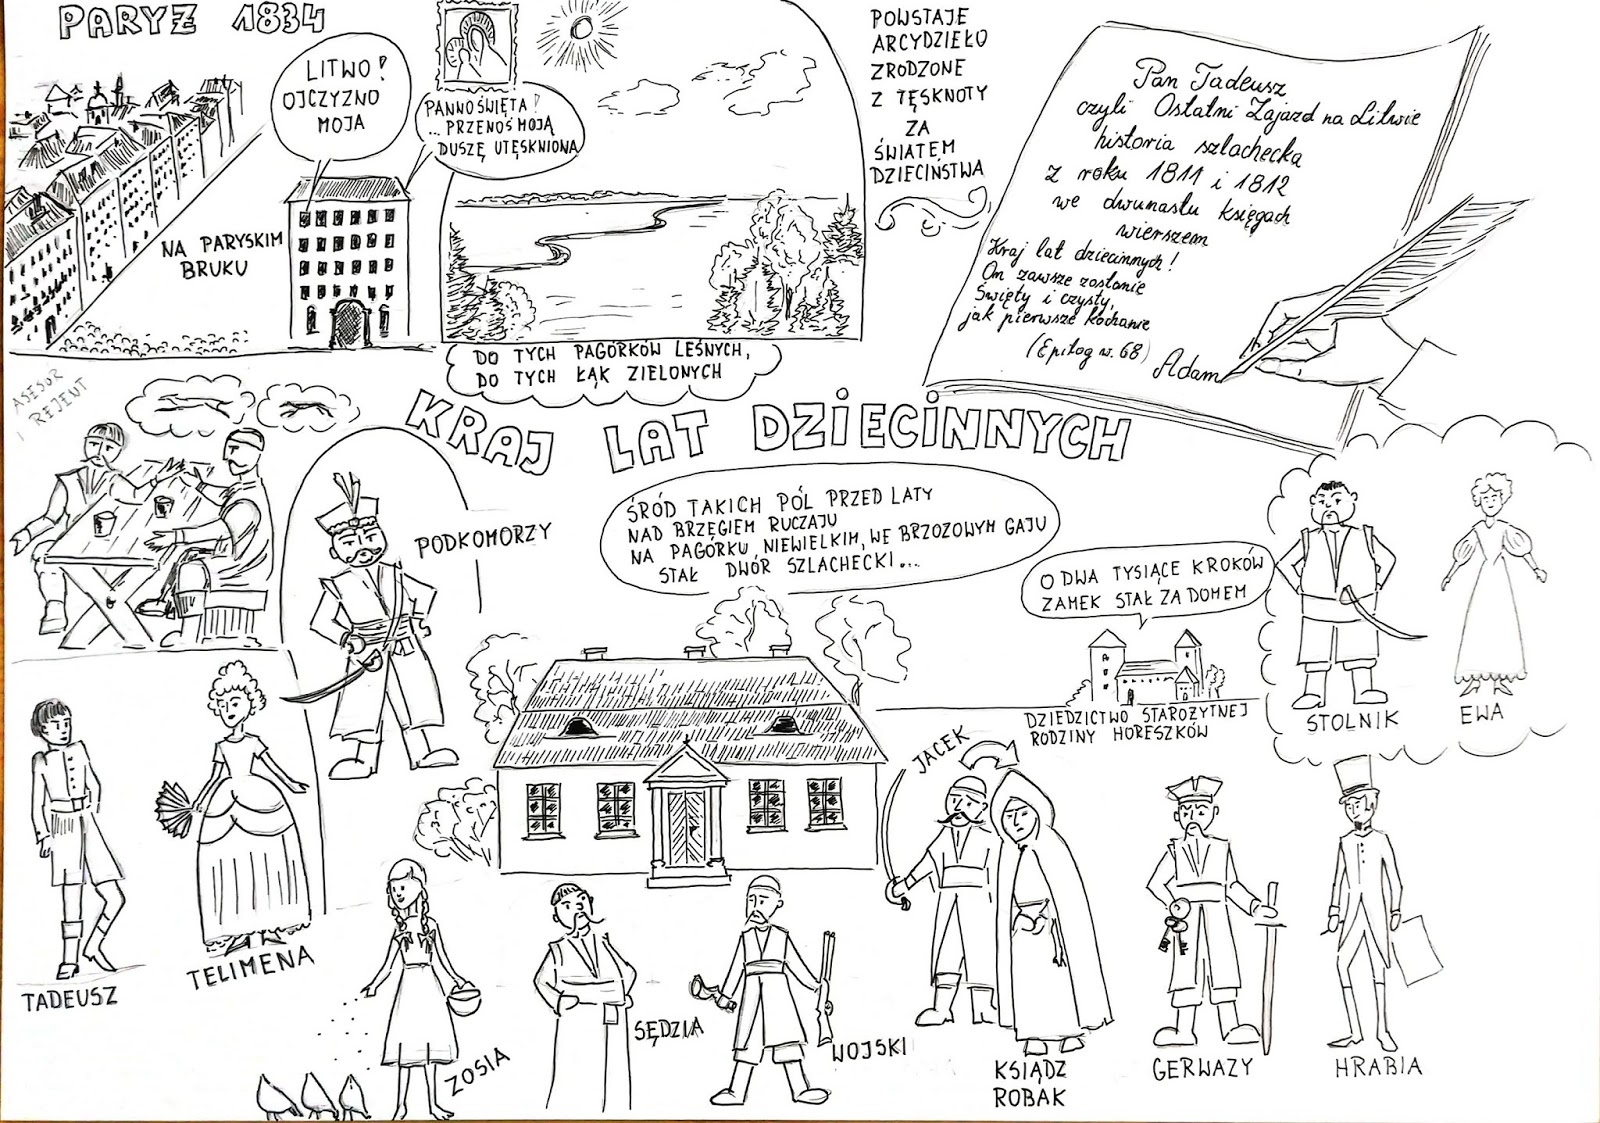 PARYŻ 1834
LITWO!
OJCZYZNO
MOJA
PANNO ŚWIĘTA!
... PRZENOŚ MOJĄ
DUSZĘ UTĘSKNIONĄ
NA PARYSKIM
BRUKU
DO TYCH PAGÓRKÓW LEŚNYCH,
DO TYCH ŁĄK ZIELONYCH
POWSTAJE
ARCYDZIEŁO
ZRODZONE
Z TĘSKNOTY
ZA
ŚWIATEM
DZIECIŃSTWA
Pan Tadeusz
czyli Ostatni Zajazd na Litwie
historia szlachecka
z roku 1811 i 1812
we dwunastu księgach
wierszem
Kraj lat dziecinnych!
On zawsze zostanie
Święty i czysty,
jak pierwsze kochanie
(Epilog w. 68)
Adam
ASESOR
I REJENT
KRAJ LAT DZIECINNYCH
PODKOMORZY
ŚRÓD TAKICH PÓL PRZED LATY
NAD BRZEGIEM RUCZAJU
NA PAGÓRKU NIEWIELKIM, WE BRZOZOWYM GAJU
STAŁ DWÓR SZLACHECKI...
O DWA TYSIĄCE KROKÓW
ZAMEK STAŁ ZA DOMEM
DZIEDZICTWO STAROŻYTNEJ
RODZINY HORESZKÓW
STOLNIK
EWA
TADEUSZ
TELIMENA
ZOSIA
SĘDZIA
WOJSKI
JACEK
KSIĄDZ
ROBAK
GERWAZY
HRABIA